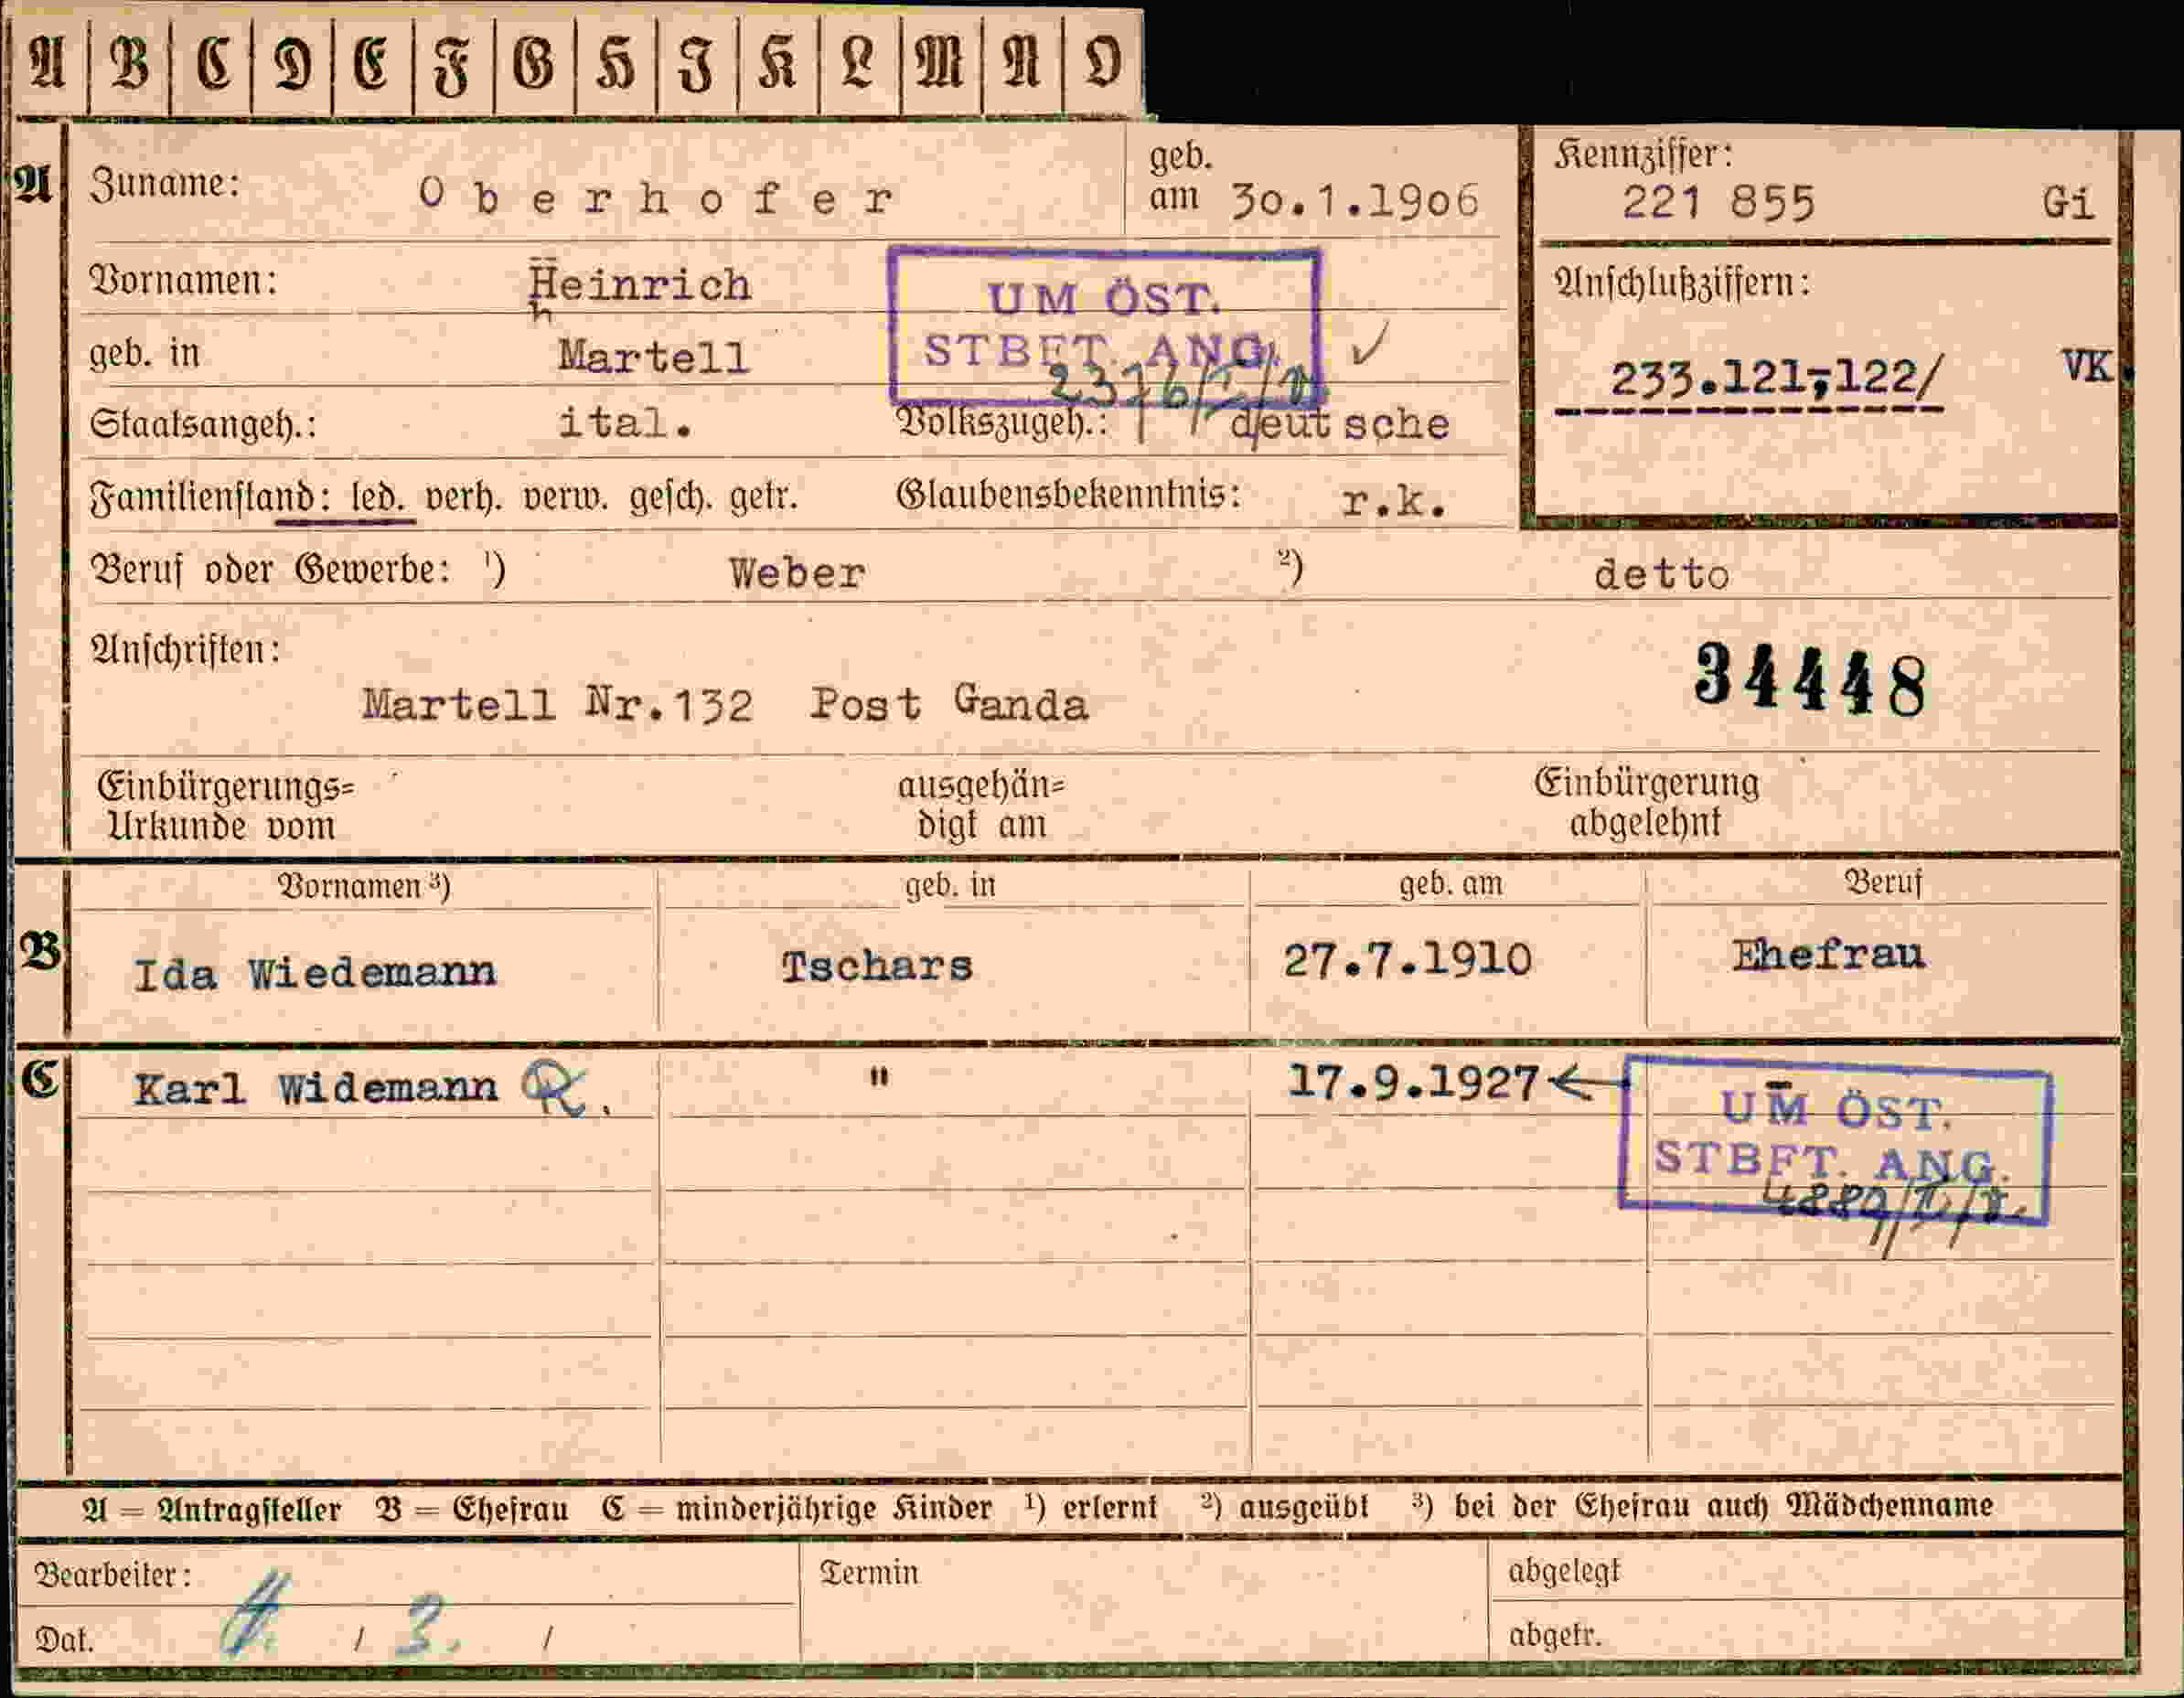 A B C D E F G H I K L M N O
A Zuname: Oberhofer geb. am 30.1.1906
Kennziffer: 221 855 Gi
Vornamen: Heinrich
UM ÖST.
STBFT. ANG.
Anschlußziffern:
geb. in Martell
233.121,122/ VK.
Staatsangeh.: ital. Volkszugeh.: deutsche
Familienstand: led. verh. verw. gesch. getr. Glaubensbekenntnis: r.k.
Beruf oder Gewerbe: ¹) Weber ²) detto
Anschriften:
34448
Martell Nr.132 Post Ganda
Einbürgerungs= ausgehän= Einbürgerung
Urkunde vom digt am abgelehnt
Vornamen ³) geb. in geb. am Beruf
B Ida Wiedemann Tschars 27.7.1910 Ehefrau
C Karl Widemann R. " 17.9.1927 -
UM ÖST.
STBFT. ANG.
A = Antragsteller B = Ehefrau C = minderjährige Kinder ¹) erlernt ²) ausgeübt ³) bei der Ehefrau auch Mädchenname
Bearbeiter: Termin abgelegt
Dat. / 3. / abgetr.